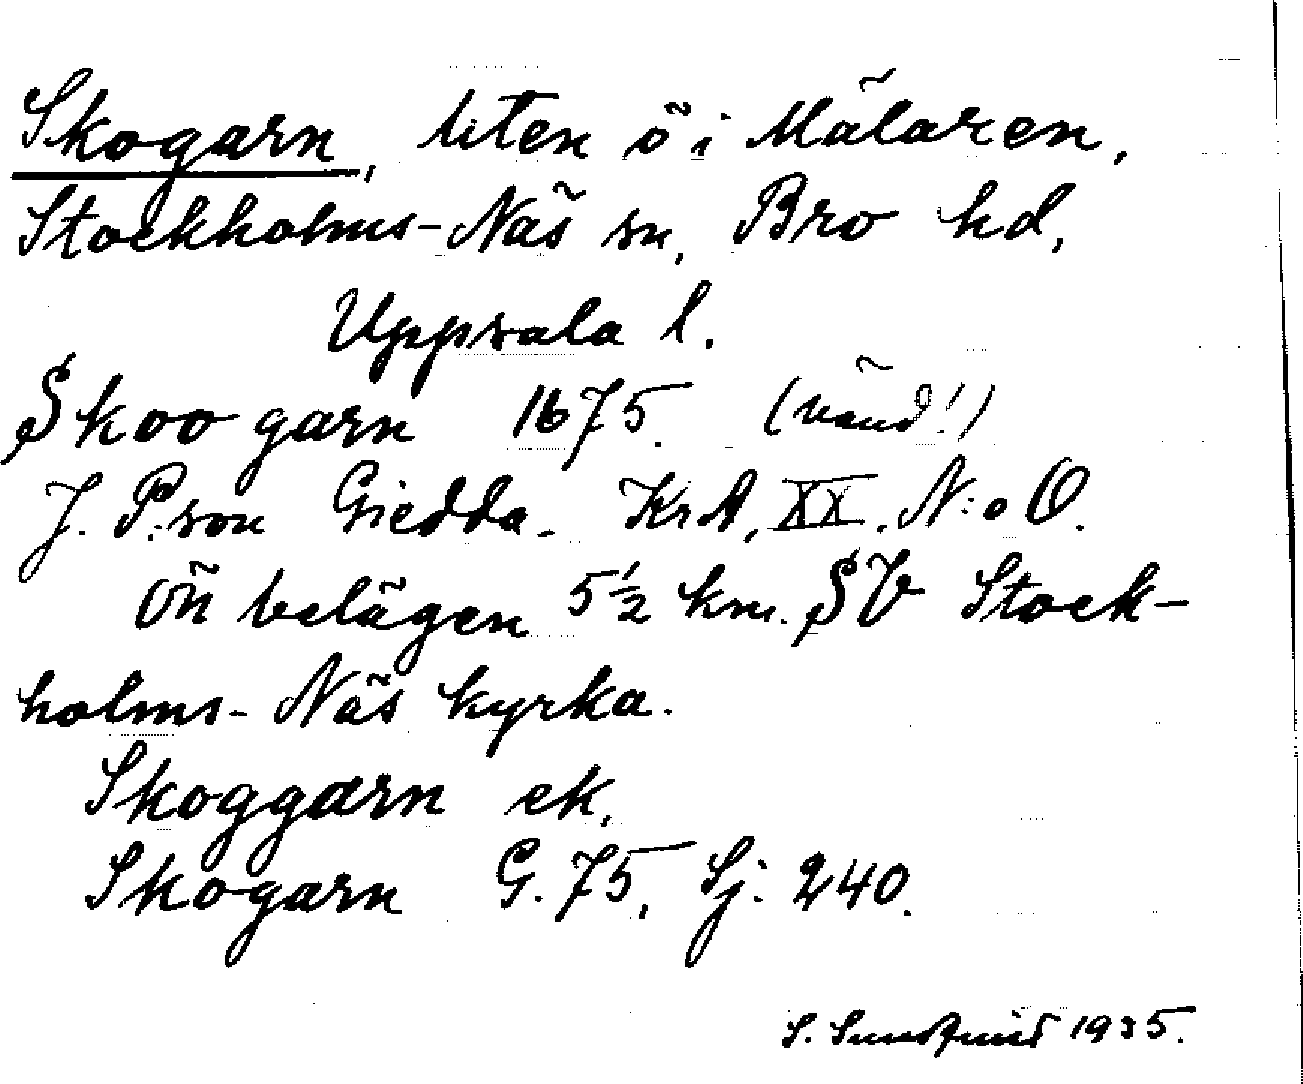 Skogarn, liten ö i Mälaren,
Stockholms-Näs sn, Bro hd,
Uppsala l.
Skoogarn 1675. (vänd!)
J. P:son Giedda. KrA, XX, N:o O.
Ön belägen 5½ km. SV Stock-
holms-Näs kyrka.
Skoggarn ek.
Skogarn G. 75, Sj. 240.
S. Sundquist 1935.